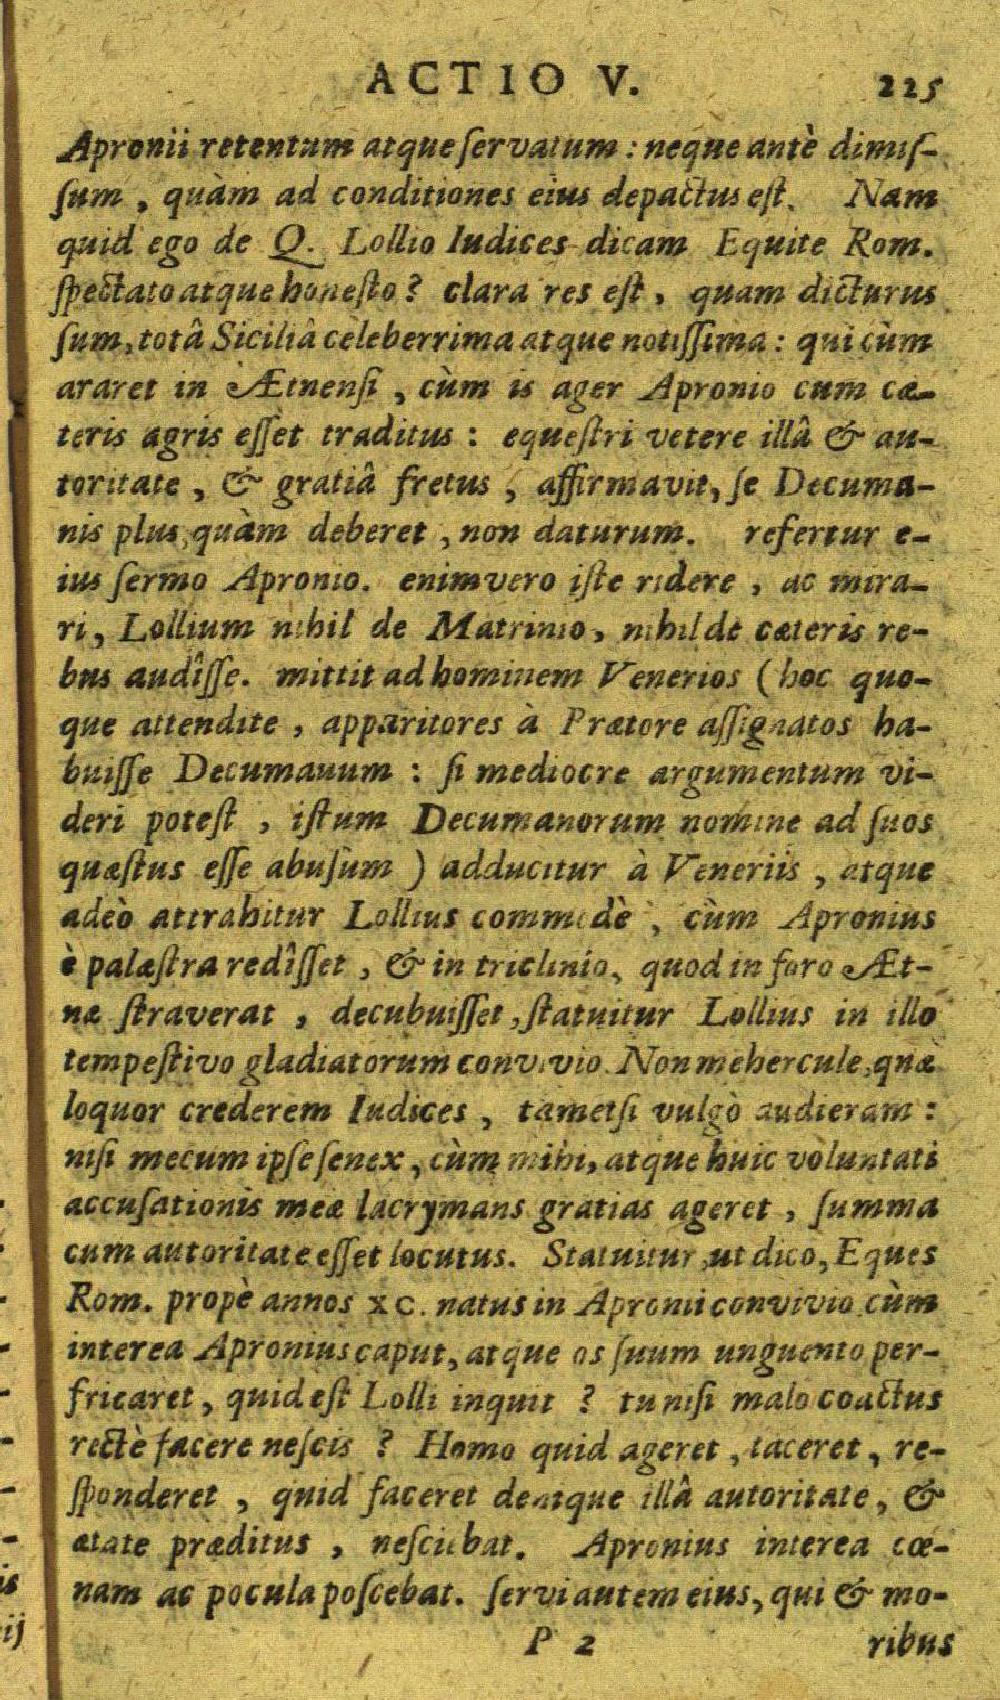 ACTIO V. 225
Apronii retentum atque ſervatum : neque antè dimiſ-
ſum , quàm ad conditiones eius depactus eſt. Nam
quid ego de Q. Lollio Iudices dicam Equite Rom.
ſpectato atque honeſto ? clara res eſt , quam dicturus
ſum, totâ Siciliâ celeberrima atque notiſſima : qui cùm
araret in Ætnenſi , cùm is ager Apronio cum cæ-
teris agris eſſet traditus : equeſtri vetere illâ & au-
toritate , & gratiâ fretus , affirmavit, ſe Decuma-
nis plus quàm deberet , non daturum. refertur e-
ius ſermo Apronio. enimvero iſte ridere , ac mira-
ri, Lollium nihil de Matrinio, nihil de cæteris re-
bus audîſſe. mittit ad hominem Venerios ( hoc quo-
que attendite , apparitores à Prætore aſſignatos ha-
buiſſe Decumanum : ſi mediocre argumentum vi-
deri poteſt , iſtum Decumanorum nomine ad ſuos
quæſtus eſſe abuſum ) adducitur à Veneriis , atque
adeò attrahitur Lollius commodè , cùm Apronius
è palæſtra redîſſet , & in triclinio, quod in foro Æt-
næ ſtraverat , decubuiſſet , ſtatuitur Lollius in illo
tempeſtivo gladiatorum convivio. Non mehercule, quæ
loquor crederem Iudices , tametſi vulgò audieram :
niſi mecum ipſe ſenex , cùm mihi, atque huic voluntati
accuſationis meæ lacrymans gratias ageret , ſumma
cum autoritate eſſet locutus. Statuitur, ut dico, Eques
Rom. propè annos XC. natus in Apronii convivio cùm
interea Apronius caput, atque os ſuum unguento per-
fricaret , quid eſt Lolli inquit ? tu niſi malo coactus
rectè facere neſcis ? Homo quid ageret , taceret , re-
ſponderet , quid faceret denique illâ autoritate, &
ætate præditus , neſciebat. Apronius interea cœ-
nam ac pocula poſcebat. ſervi autem eius, qui & mo-
P 2 ribus